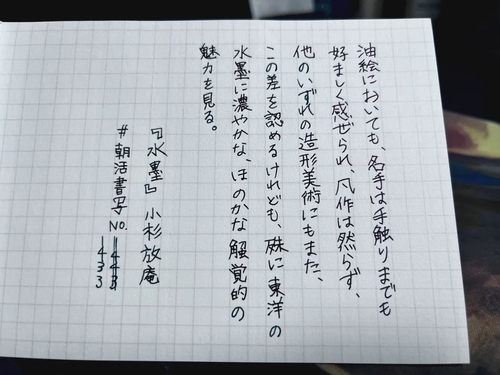 油絵においても、名手は手触りまでも
好ましく感ぜられ、凡作は然らず、
他のいずれの造形美術にもまた、
この差を認めるけれども、殊に東洋の
水墨に濃やかな、ほのかな触覚的の
魅力を見る。
『水墨』小杉放庵
#朝活書写 No.
433